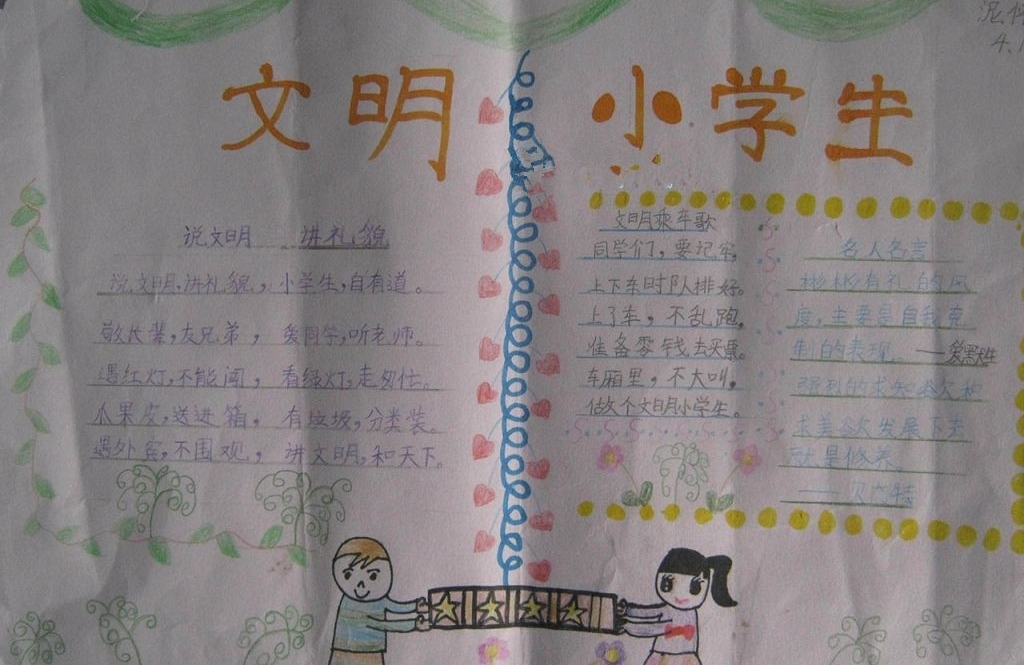 文明 小学生
说文明 讲礼貌
说文明,讲礼貌,小学生,自有道。
敬长辈,友兄弟,爱同学,听老师。
遇红灯,不能闯,看绿灯,走匆忙。
瓜果皮,送进箱,有垃圾,分类装。
遇外宾,不围观,讲文明,和天下。
文明乘车歌
同学们,要记牢,
上下车时队排好。
上了车,不乱跑,
准备零钱去买票。
车厢里,不大叫,
做个文明小学生。
名人名言
彬彬有礼的风
度,主要是自我克
制的表现。——爱默生
强烈的求知欲和
求美欲发展下去
就是修养。
——贝
4.